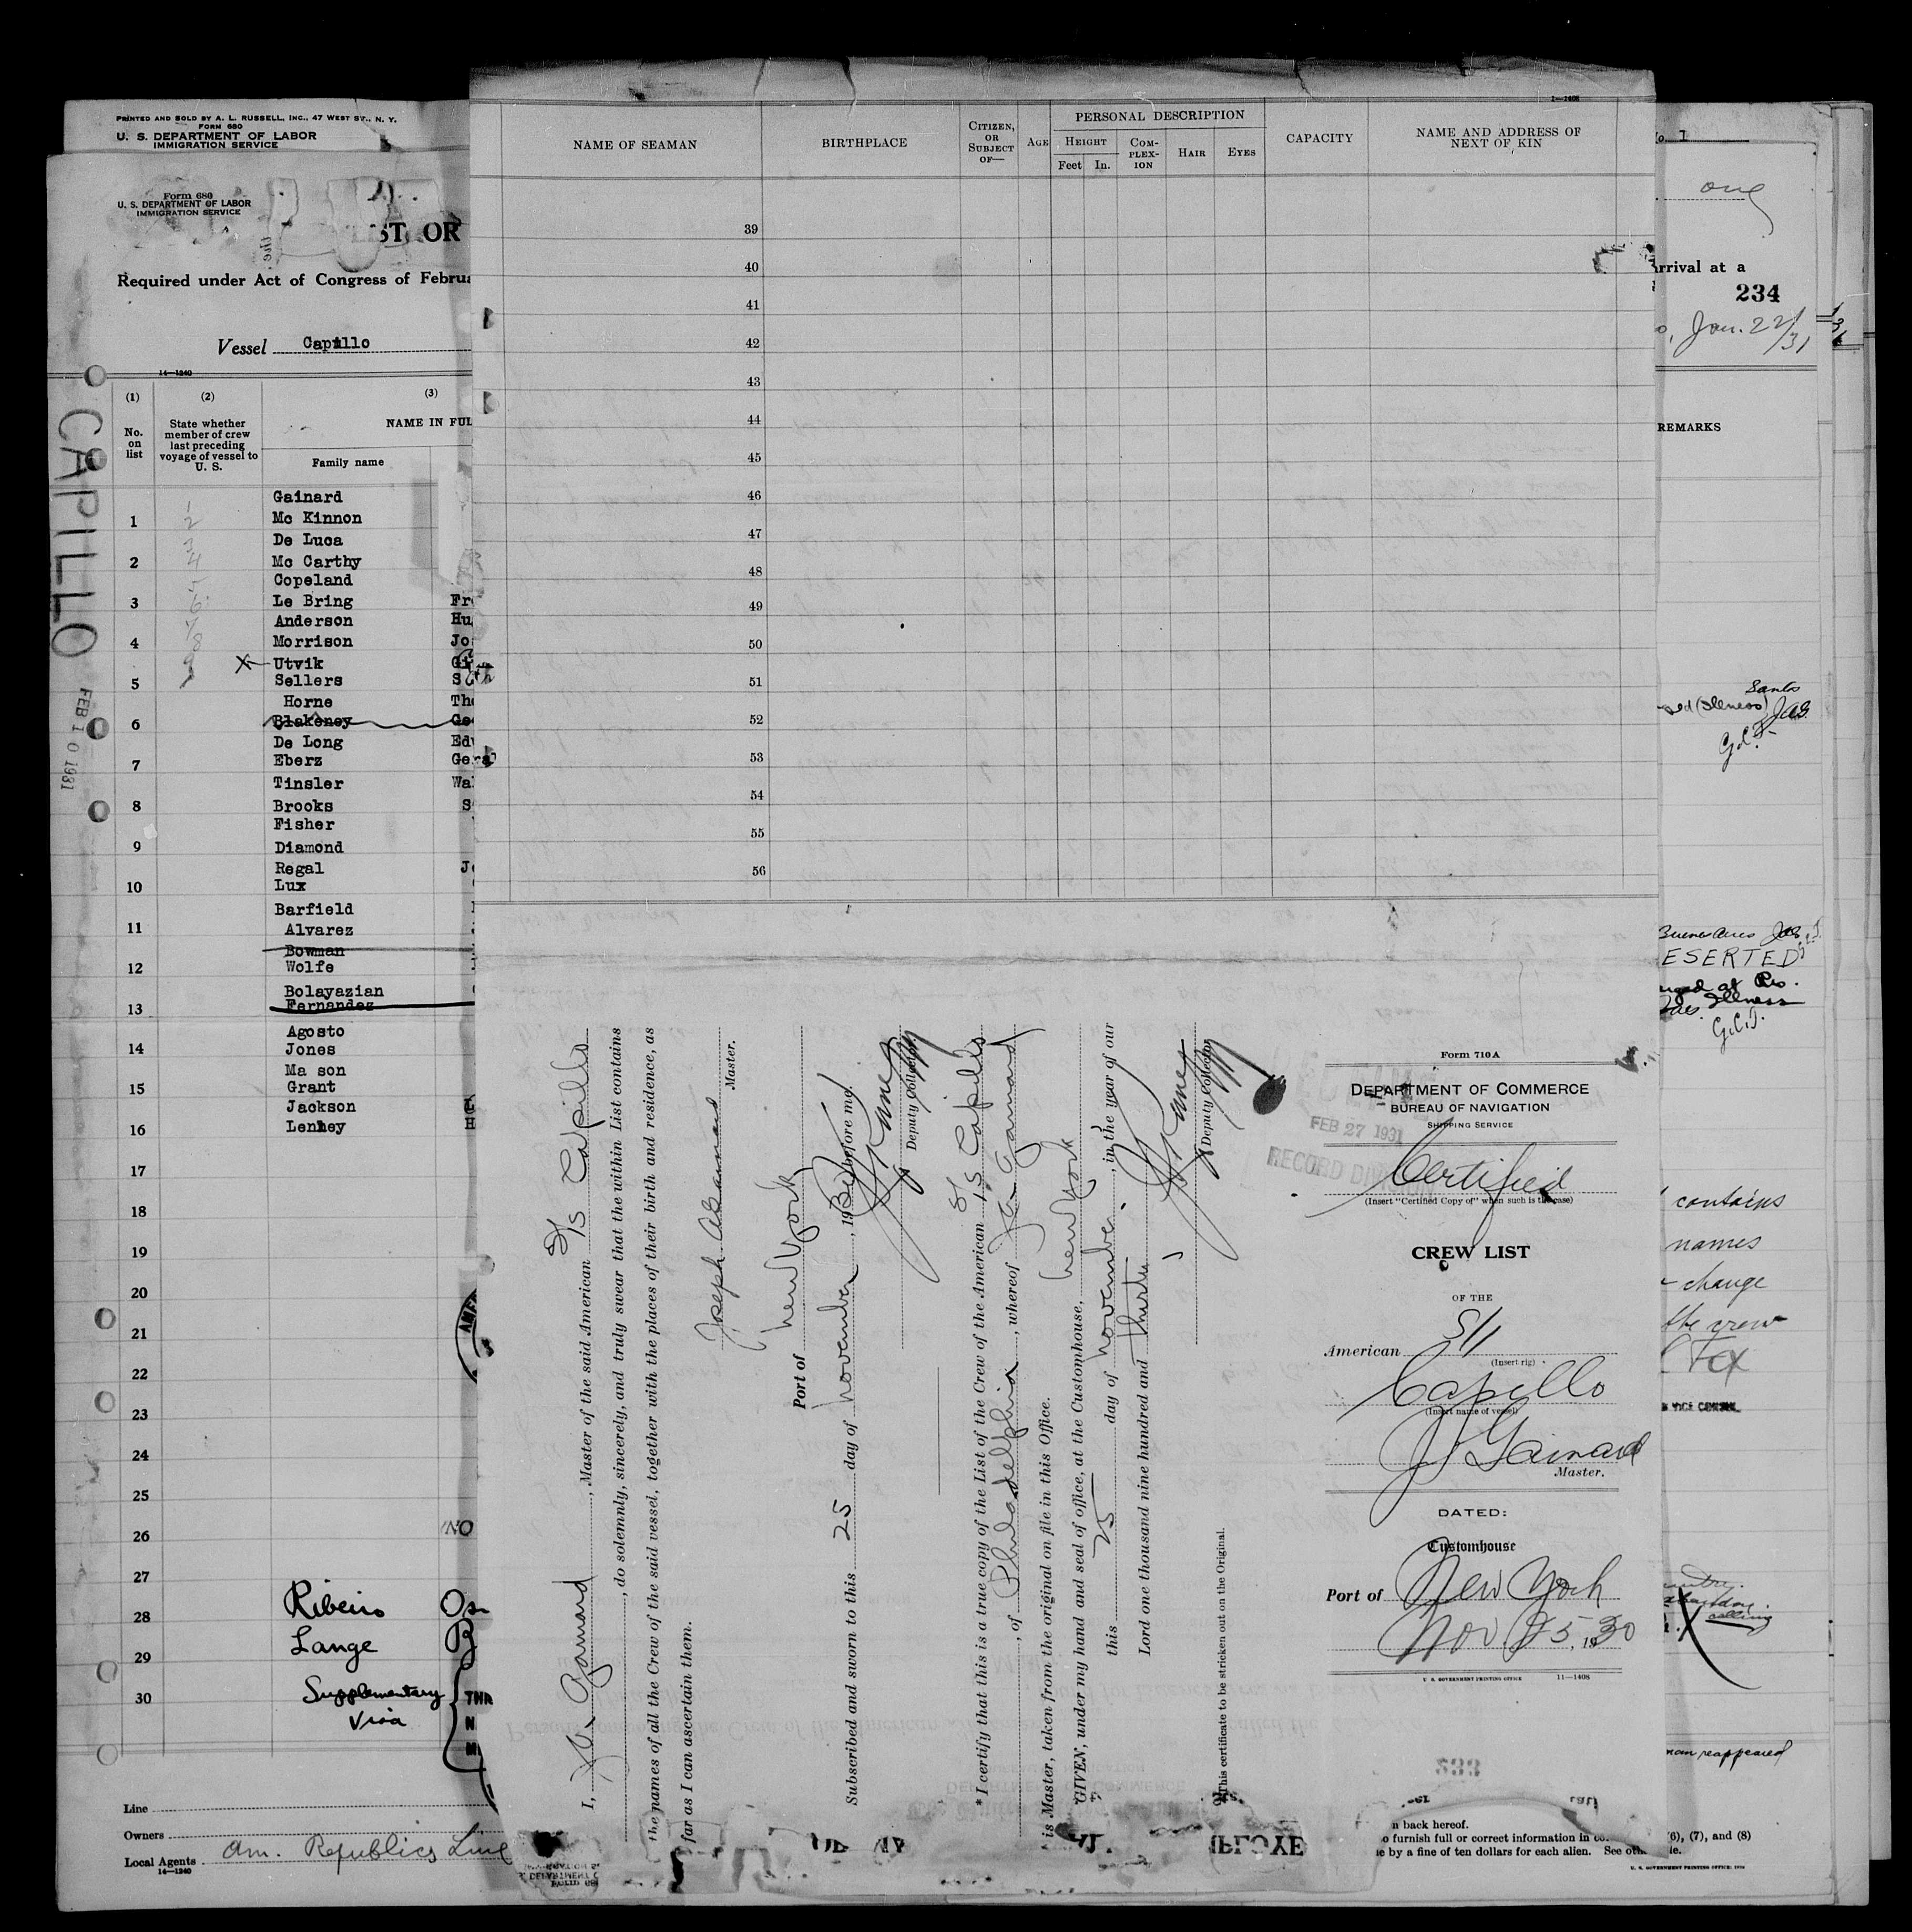 PRINTED AND SOLD BY A. L. RUSSELL, INC., 47 WEST ST., N. Y.
FORM 680
U. S. DEPARTMENT OF LABOR
IMMIGRATION SERVICE
Form 680
U. S. DEPARTMENT OF LABOR
IMMIGRATION SERVICE
LIST OR
Required under Act of Congress of Februa
Vessel Capillo
14—1240
CAPILLO
FEB 10 1931
(1) (2) (3)
No. on list
State whether member of crew last preceding voyage of vessel to U. S.
NAME IN FUL
Family name
Gainard
1 Mc Kinnon
De Luca
2 Mc Carthy
Copeland
3 Le Bring Fr
Anderson Hu
4 Morrison Jo
X Utvik
5 Sellers
Horne The
6 Blakeney Ge
De Long Ed
7 Eberz Ge
Tinsler Wa
8 Brooks S
Fisher
9 Diamond
Regal Jo
10 Lux
Barfield
11 Alvarez
Bowman
12 Wolfe
Bolayazian
13 Fernandez
Agosto
14 Jones
Ma son
15 Grant
Jackson
16 Lenhey H
17
18
19
20
21
22
23
24
25
26
27
28 Ribeiro Os
29 Lange B
30 Supplementary
Visa
Line
Owners
Local Agents Am. Republics Line
14—1240
NAME OF SEAMAN
BIRTHPLACE
CITIZEN, OR SUBJECT OF—
AGE
PERSONAL DESCRIPTION
HEIGHT
Feet In.
COM-PLEX-ION
HAIR
EYES
CAPACITY
NAME AND ADDRESS OF NEXT OF KIN
39
40
41
42
43
44
45
46
47
48
49
50
51
52
53
54
55
56
I, J. A. Gainard, Master of the said American S/S Capillo
, do solemnly, sincerely, and truly swear that the within List contains
the names of all the Crew of the said vessel, together with the places of their birth and residence, as
far as I can ascertain them.
Joseph A Gainard
Master.
Port of New York
Subscribed and sworn to this 25 day of November, 19 before me,
Deputy Collector
* I certify that this is a true copy of the List of the Crew of the American S/S Capillo
, of Philadelphia, whereof Ja Gainard
is Master, taken from the original on file in this Office.
GIVEN, under my hand and seal of office, at the Customhouse, New York
this 25 day of November, in the year of our
Lord one thousand nine hundred and thirty
Deputy Collector
This certificate to be stricken out on the Original.
Form 710 A
DEPARTMENT OF COMMERCE
BUREAU OF NAVIGATION
SHIPPING SERVICE
FEB 27 1931
RECORD DIVISION
Certified
(Insert "Certified Copy of" when such is the case)
CREW LIST
OF THE
American S/S
(Insert rig)
Capillo
(Insert name of vessel)
J Gainard
Master.
DATED:
Customhouse
Port of New York
Nov 25, 1930
U. S. GOVERNMENT PRINTING OFFICE 11—1408
one
rrival at a
234
Jan. 22/31
REMARKS
Santos
Buenos Aires
ESERTED
at Rio.
Illness
G.C.J.
contains
names
change
the crew
Fox
VICE CONSUL
calling
man reappeared
n back hereof.
o furnish full or correct information in (6), (7), and (8)
e by a fine of ten dollars for each alien.
U. S. GOVERNMENT PRINTING OFFICE